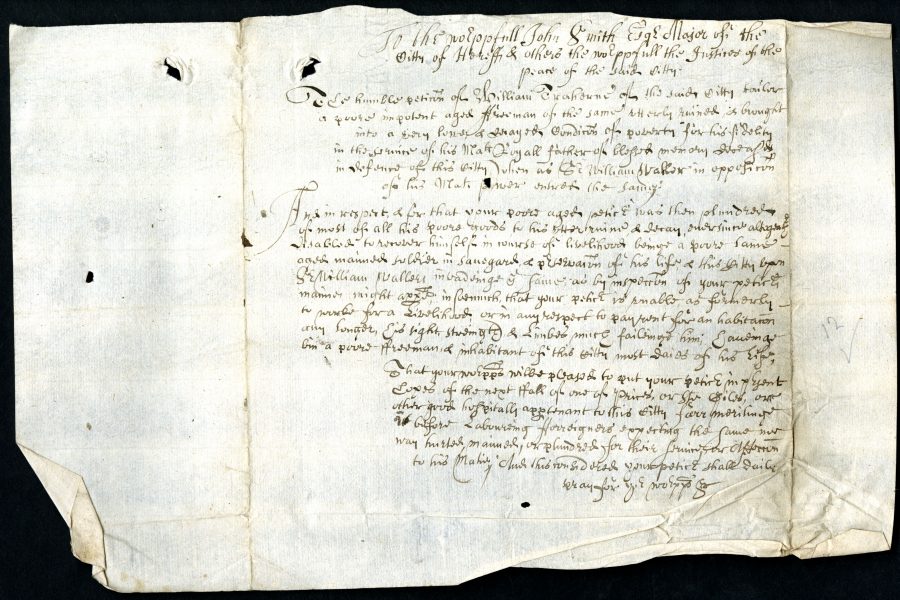 To the worppfull John Smith Esqr Maior of the
Citty of Hereff & others the worppfull the Justices of the
peace of the said Citty
The humble peticon of William Traherne of the said Citty tayler
a poore impotent aged ffreeman of the same utterly ruined & brought
into a very lowe & decayed Condicon of poverty for his fidelity
in the service of his Mats Royall father of blessed memory deceased
in defence of this Citty when as Sr William Waller in opposicon
of his Mats power entred the same
And in respect, & for that your poore aged peticr was then plundred
of most of all his poore goods to his utter ruine & decay, ever since
disabled to recover himself in course of livelihood beinge a poore lame
aged maimed soldier in savegard & preservacon of his life & this Citty upon
Sr William Wallers invadeinge ye same, as by inspeccon of your peticrs
maimes might appeare insoemuch that your peticr is unable as formerly
to worke for a livelihood or in any respect to pay rent for an habitacon
any longer, his sight strength & Limbes much faileinge him, haveinge
bin a poore ffreeman & inhabitant of this Citty most daies of his life,
That your worpps wilbe pleased to put your peticr in present
of the next ffall of one of Prices, or St Giles, or
other good hospitalls apptenant to this Citty farr meritinge
before Labouringe fforreigners expecting the same noe
way hurted, maimed, or plundred for their service or Affeccon
to his Matie, And this considered your peticr shall daily
pray for yor worpps &c
12